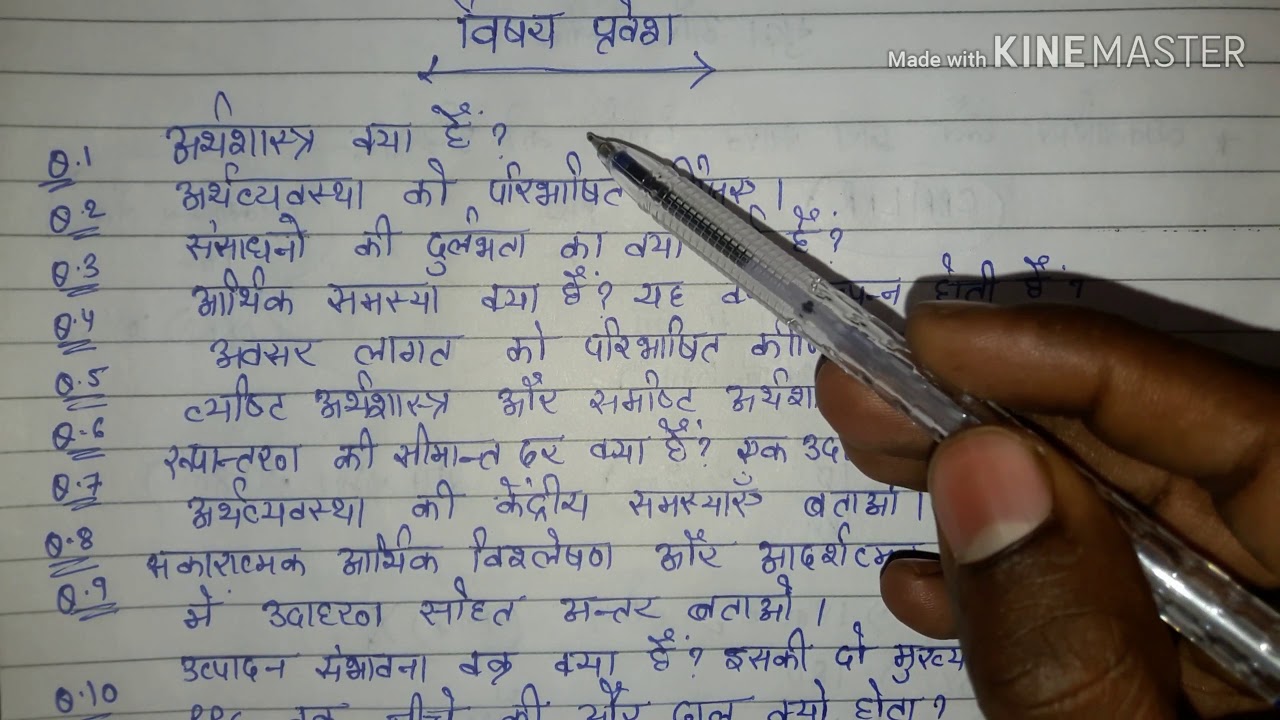 विषय प्रवेश
Made with KINEMASTER
Q.1 अर्थशास्त्र क्या हैं?
Q.2 अर्थव्यवस्था को परिभाषित
Q.3 संसाधनो की दुर्लभता का क्या हैं?
Q.4 आर्थिक समस्या क्या हैं? यह होती हैं?
Q.5 अवसर लागत को परिभाषित
Q.6 व्यष्टि अर्थशास्त्र और समष्टि
Q.7 रूपान्तरण की सीमान्त दर क्या हैं? एक
Q.8 अर्थव्यवस्था की केंद्रीय समस्याएँ बताओ।
Q.9 सकारात्मक आर्थिक विश्लेषण और
में उदाहरण सहित अन्तर बताओ।
Q.10 उत्पादन संभावना वक्र क्या हैं? इसकी दो
PPC नीचे की और ढाल क्यो होता?